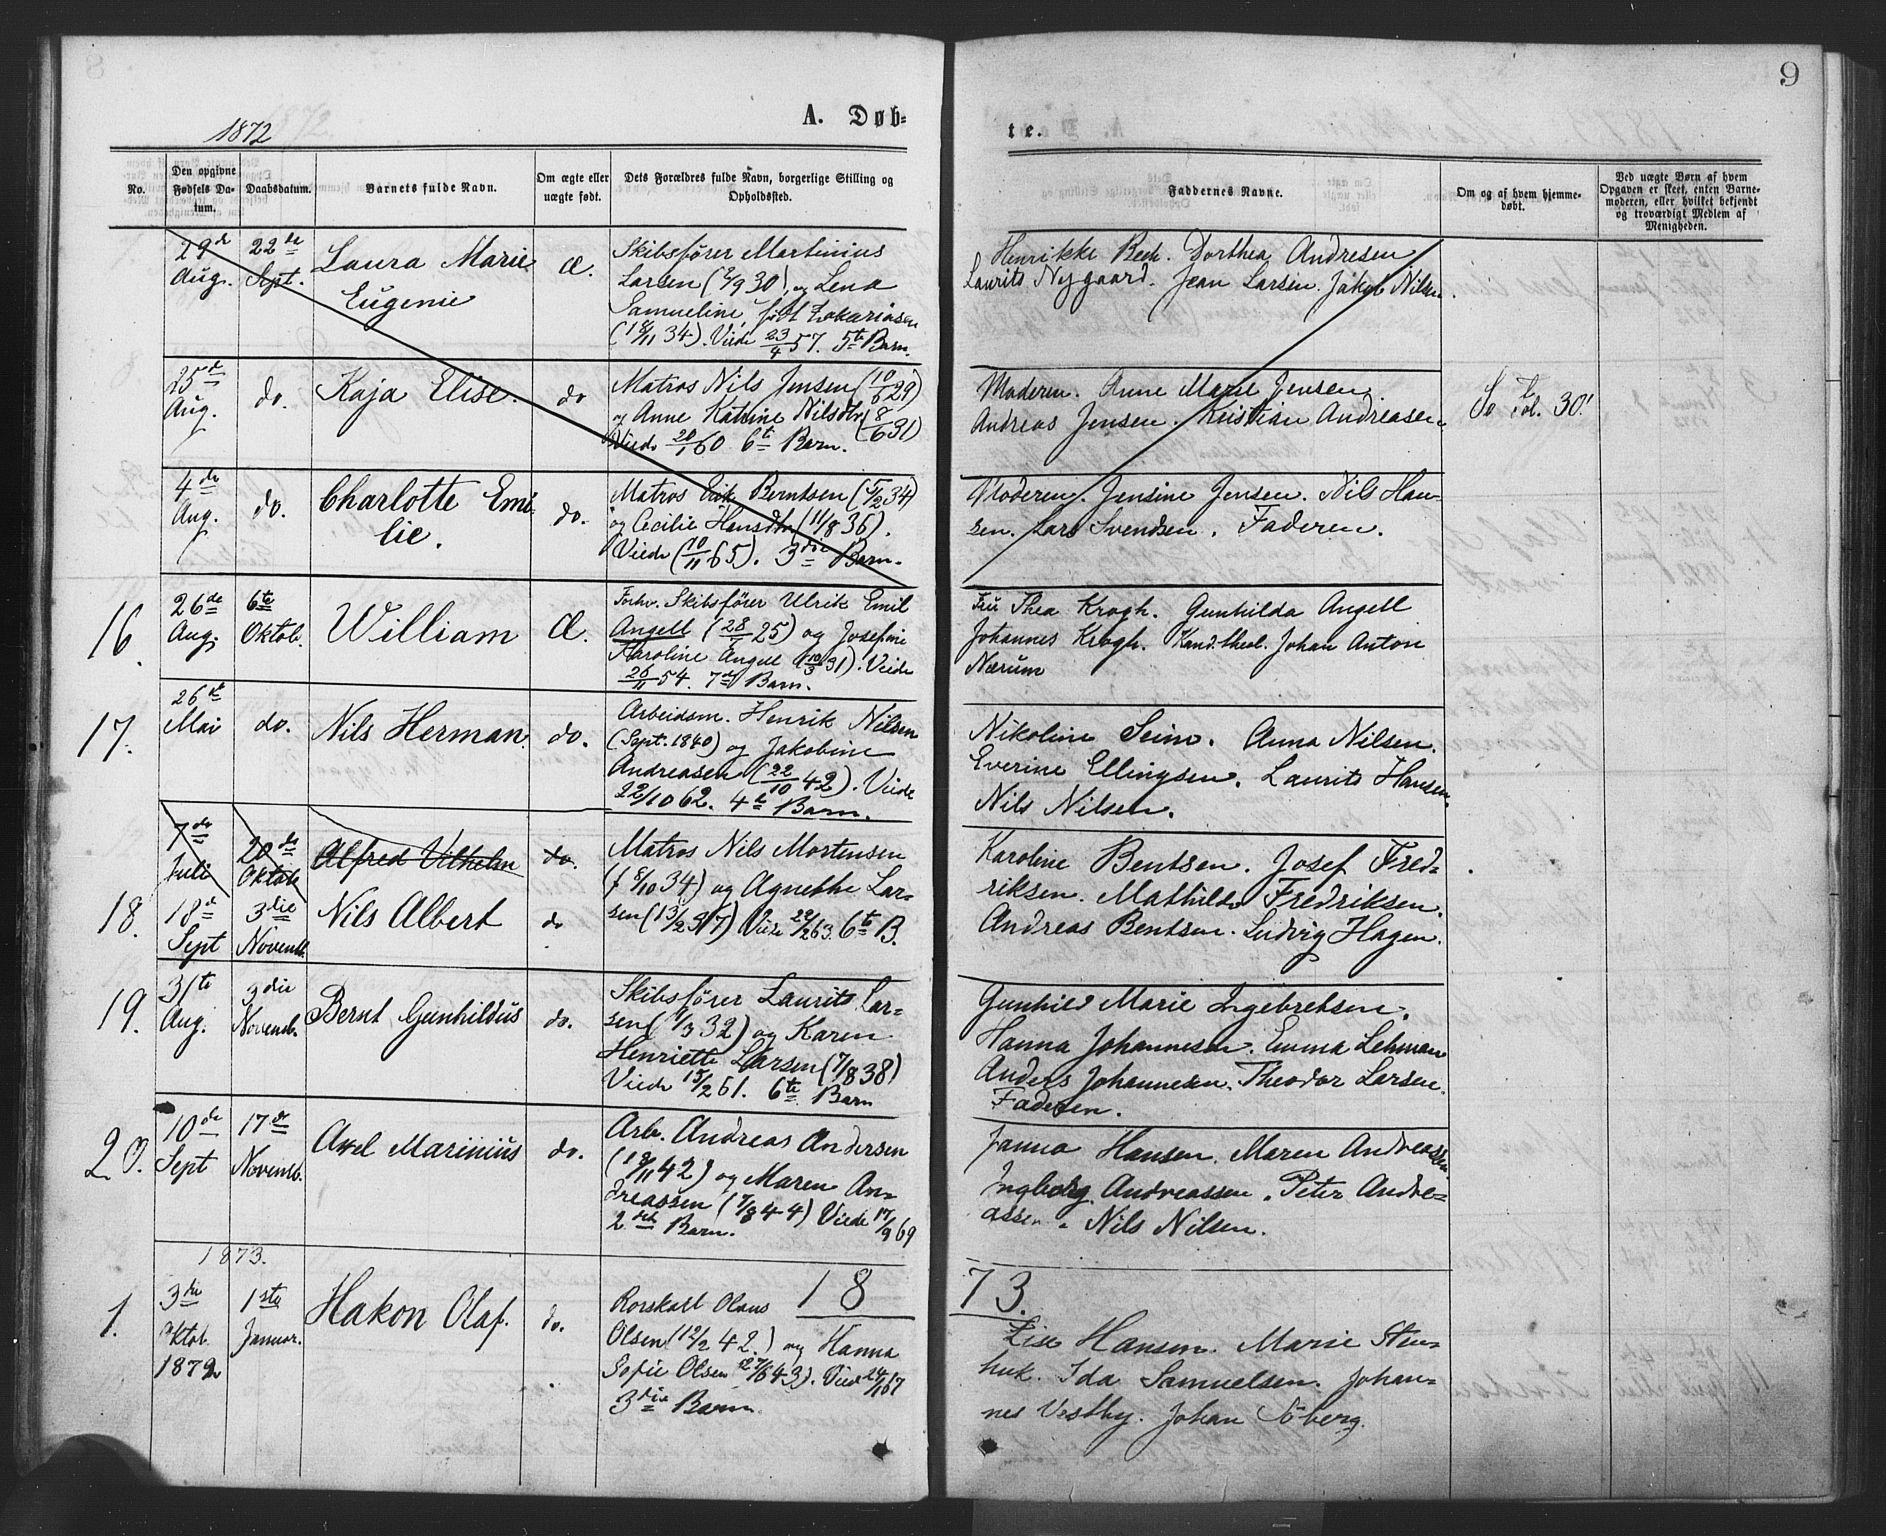 9
1872
A. Døb-
te.
No.
Den opgivne Fødsels Datum.
Daabsdatum.
Barnets fulde Navn.
Om ægte eller uægte født.
Dets Forældres fulde Navn, borgerlige Stilling og Opholdssted.
Faddernes Navne.
Om og af hvem hjemmedøbt.
Ved uægte Børn af hvem Opgaven er skeet, enten Barnemoderen, eller hvilket bekjendt og troværdigt Medlem af Menigheden.
29de Aug.
22de Sept.
Laura Marie
Eugenie
Æ.
Skibsfører Martinius
Larsen (2/9 30), og Lena
Samueline, født Zakariasen
(18/11 34). Viede 23/4 57. 5te Barn.
Henrikke Bech. Dorthea Andresen
Laurits Nygaard. Jean Larsen. Jakob Nilsen.
25de Aug.
do.
Kaja Elise.
do
Matros Nils Jensen (10/6 29)
og Anne Katrine Nilsdtr (8/6 31)
Viede 20/1 60. 6te Barn.
Moderen. Anne Marie Jensen.
Andreas Jensen. Kristian Andreasen.
Se Fol. 30!
4de Aug.
do.
Charlotte Emi
lie.
do.
Matros Erik Berntsen (5/2 34)
og Cecilie Hansdtr (11/8 36).
Viede (10/11 65). 3die Barn.
Moderen. Jensine Jensen. Nils Han-
sen. Lars Svendsen. Faderen.
16.
26de Aug.
6te Oktob.
William
Æ.
Forhv. Skibsfører Ulrik Emil
Angell (28/ 25) og Josefine
Karoline Angell (10/3 31). Viede
26/11 54. 7de Barn.
Fru Thea Krogh. Gunhilda Angell
Johannes Krogh. Kand. theol. Johan Anton
Nærum
17.
26de Mai
do.
Nils Herman.
do.
Arbeidsm. Henrik Nilsen
(Sept. 1840) og Jakobine
Andreasen (22/10 42). Viede
22/10 62. 4de Barn.
Nikoline Seim. Anna Nilsen.
Everine Ellingsen. Laurits Hansen.
Nils Nilsen.
7de Juli
20de Oktob.
Alfred Vilhelm
do.
18.
18de Sept
3die Novemb.
Nils Albert
do
Matros Nils Mortensen
(f 8/10 34) og Agnethe Lar-
sen (13/2 37) Viede 22/2 63. 6te B.
Karoline Bentsen. Josef Fred-
riksen. Mathilde Fredriksen.
Andreas Bentsen. Ludvig Hagen.
19.
31te Aug.
3die Novemb.
Bernt Gunhildus
do.
Skibsfører Laurits Lar-
sen (1/3 32) og Karen
Henriette Larsen (7/8 38)
Viede 15/2 61. 6te Barn
Gunhild Marie Ingebretsen.
Hanna Johannesen. Emma Lehman
Anders Johannesen. Theodor Larsen.
Faderen.
20.
10de Sept
17de Novemb.
Axel Marinius
do.
Arb. Andreas Andersen
(18/11 42) og Maren An-
dreassen (7/8 44) Viede 17/9 69
2det Barn.
Janna Hansen. Maren Andreassen
Ingborg Andreassen. Peter Andre-
assen. Nils Nilsen.
1873.
18
73.
1.
3die Oktob. 1872
1ste Januar.
Hakon Olaf.
do.
Rorskall Olaus
Olsen (12/2 42.) og Hanna
Sofie Olsen (27/6 43). Viede 24/1 67
3die Barn.
Lise Hansen. Marie Sten-
huk. Ida Samuelsen. Johan-
nes Vestby. Johan Söberg.